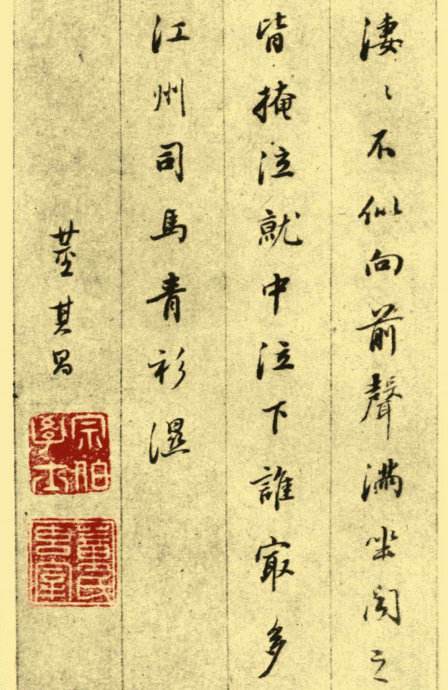 淒〻不似向前聲滿坐聞之
皆掩泣就中泣下誰㝡多
江州司馬青衫濕
董其昌
宗伯學士
董氏玄宰